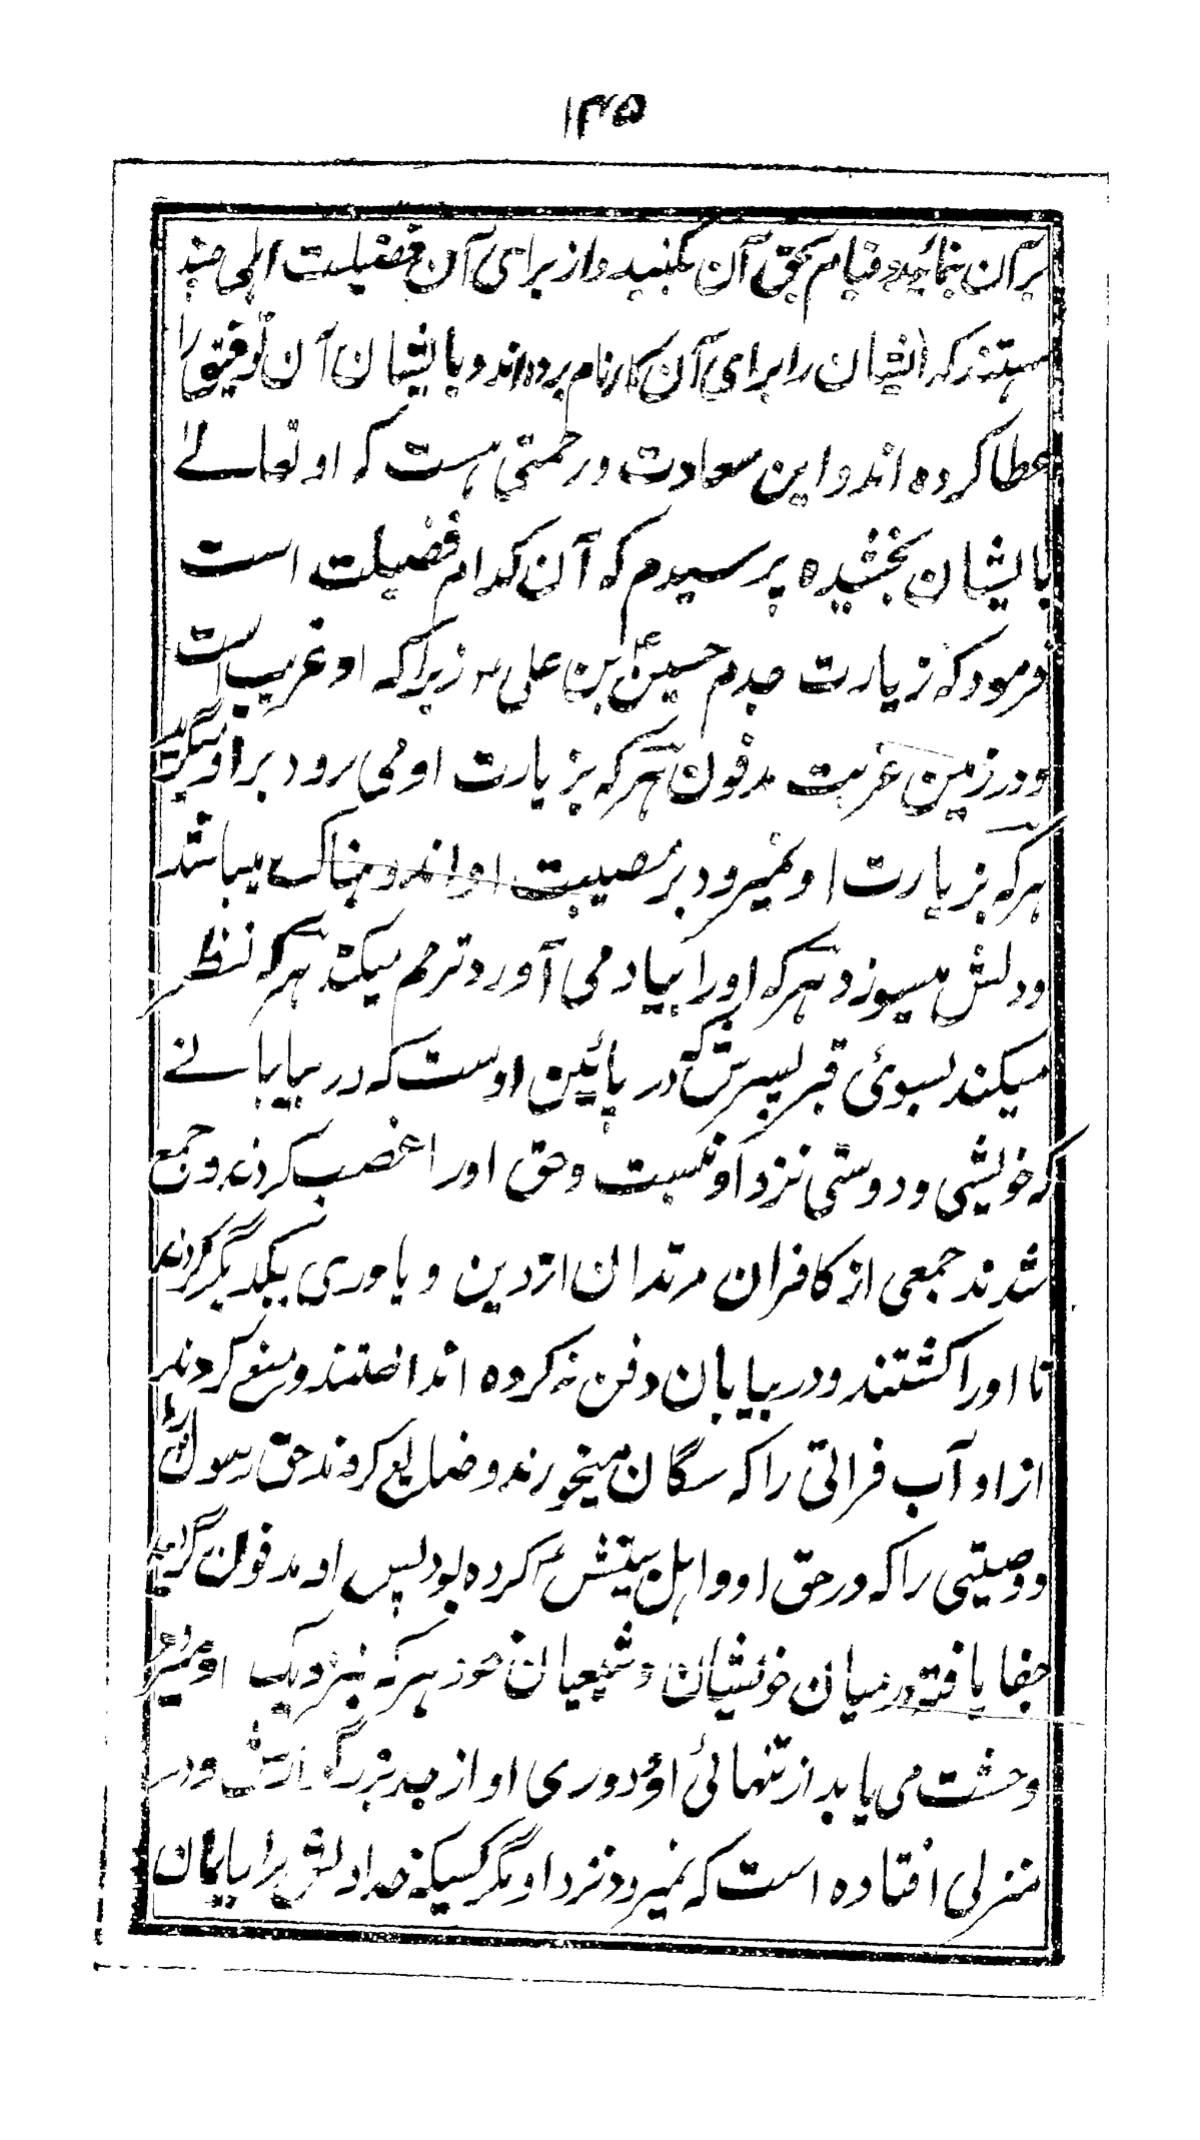 ۱۴۵
برآن بنمائید و قیام بحق آن بکنید و از برای آن فضیلت اهلی چند
هستند که ایشان را برای آن کار نام برده اند و بایشان آن توفیق را
عطا کرده اند و این سعادت و رحمتی هست که او تعالے
بایشان بخشیده پرسیدم که آن کدام فضیلت است
فرمود که زیارت جدم حسینؑ بن علیؑ زیرا که او غریب است
و در زمین غربت مدفون هرکه بزیارت او می رود بر او میگرید
هرکه بزیارت او نمیرود بر مصیبت او اندوهناک میباشد
و دلش میسوزد هرکه او را بیاد می آورد ترحم میکند هرکه نظر
میکند بسوئ قبر پسرش که در پائین اوست که در بیابانے
که خویشی و دوستی نزد او نیست و حق او را غصب کردند و جمع
شدند جمعی از کافران مرتدان از دین و یاوری یکدیگر کردند
تا او را کشتند و در بیابان دفن نه کرده انداختند و منع کردند
از او آب فراتی را که سگان میخورند و ضایع کردند حق رسول
و وصیتی را که در حق او و اهل بیتش کرده بود پس او مدفون گردید
جفا یافته در میان خویشان و شیعیان خود هرکه بنزدیک او میرود
وحشت می یابد از تنهائی او و دوری او از جد بزرگوارش و در
منزلی افتاده است که نمیرود نزد او مگر کسیکه خدا دلش را بایمان